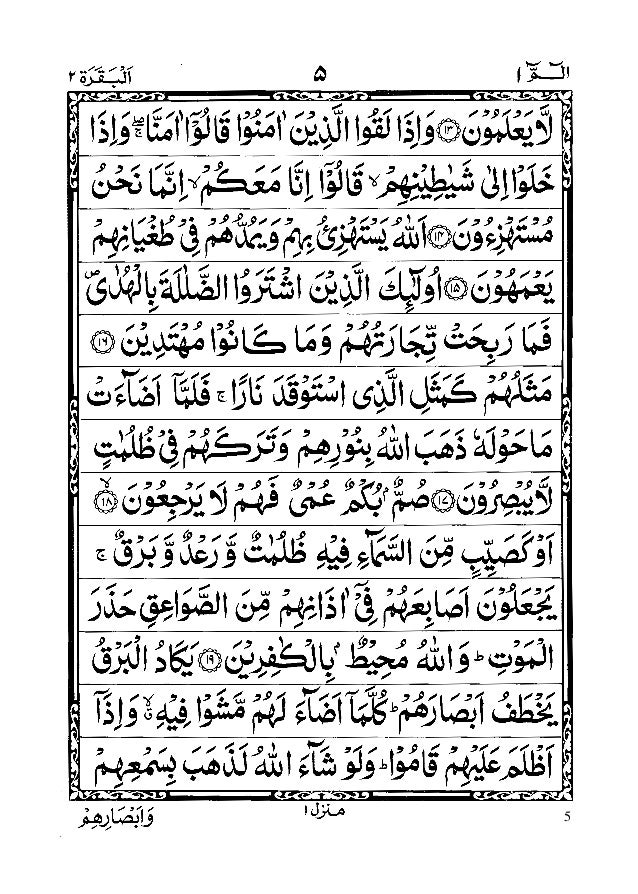 الٓمّٓ ١ ۵ اَلْبَقَرَة ٢
لَّا يَعْلَمُوْنَ ﴿١٣﴾ وَاِذَا لَقُوا الَّذِيْنَ اٰمَنُوْا قَالُوْٓا اٰمَنَّا ۚۖ وَاِذَا
خَلَوْا اِلٰى شَيٰطِيْنِهِمْ ۙ قَالُوْٓا اِنَّا مَعَكُمْ ۙ اِنَّمَا نَحْنُ
مُسْتَهْزِءُوْنَ ﴿١٤﴾ اَللّٰهُ يَسْتَهْزِئُ بِهِمْ وَيَمُدُّهُمْ فِيْ طُغْيَانِهِمْ
يَعْمَهُوْنَ ﴿١٥﴾ اُولٰٓئِكَ الَّذِيْنَ اشْتَرَوُا الضَّلٰلَةَ بِالْهُدٰى ۪
فَمَا رَبِحَتْ تِّجَارَتُهُمْ وَمَا كَانُوْا مُهْتَدِيْنَ ﴿١٦﴾
مَثَلُهُمْ كَمَثَلِ الَّذِى اسْتَوْقَدَ نَارًا ۚ فَلَمَّآ اَضَآءَتْ
مَا حَوْلَهٗ ذَهَبَ اللّٰهُ بِنُوْرِهِمْ وَتَرَكَهُمْ فِيْ ظُلُمٰتٍ
لَّا يُبْصِرُوْنَ ﴿١٧﴾ صُمٌّۢ بُكْمٌ عُمْيٌ فَهُمْ لَا يَرْجِعُوْنَ ﴿١٨﴾ ۙ
اَوْ كَصَيِّبٍ مِّنَ السَّمَآءِ فِيْهِ ظُلُمٰتٌ وَّرَعْدٌ وَّبَرْقٌ ۚ
يَجْعَلُوْنَ اَصَابِعَهُمْ فِيْٓ اٰذَانِهِمْ مِّنَ الصَّوَاعِقِ حَذَرَ
الْمَوْتِ ؕ وَاللّٰهُ مُحِيْطٌۢ بِالْكٰفِرِيْنَ ﴿١٩﴾ يَكَادُ الْبَرْقُ
يَخْطَفُ اَبْصَارَهُمْ ؕ كُلَّمَآ اَضَآءَ لَهُمْ مَّشَوْا فِيْهِ ۙۗ وَاِذَآ
اَظْلَمَ عَلَيْهِمْ قَامُوْا ؕ وَلَوْ شَآءَ اللّٰهُ لَذَهَبَ بِسَمْعِهِمْ
وَاَبْصَارِهِمْ منزل ١ 5